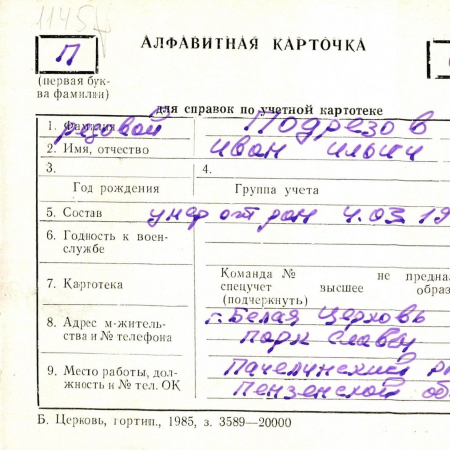 1145
П
АЛФАВИТНАЯ КАРТОЧКА
(первая бук-
ва фамилии)
для справок по учетной картотеке
1. Фамилия рядовой Подрезов
2. Имя, отчество Иван Ильич
3.
Год рождения
4.
Группа учета
5. Состав умер от ран 4.03 19
6. Годность к воен-
службе
7. Картотека
Команда № не предна
спецучет высшее образ
(подчеркнуть)
8. Адрес м-житель-
ства и № телефона
г. Белая Церковь
парк Славы
9. Место работы, дол-
жность и № тел. ОК
Пачелмский р
Пензенской об
Б. Церковь, гортип., 1985, з. 3589—20000